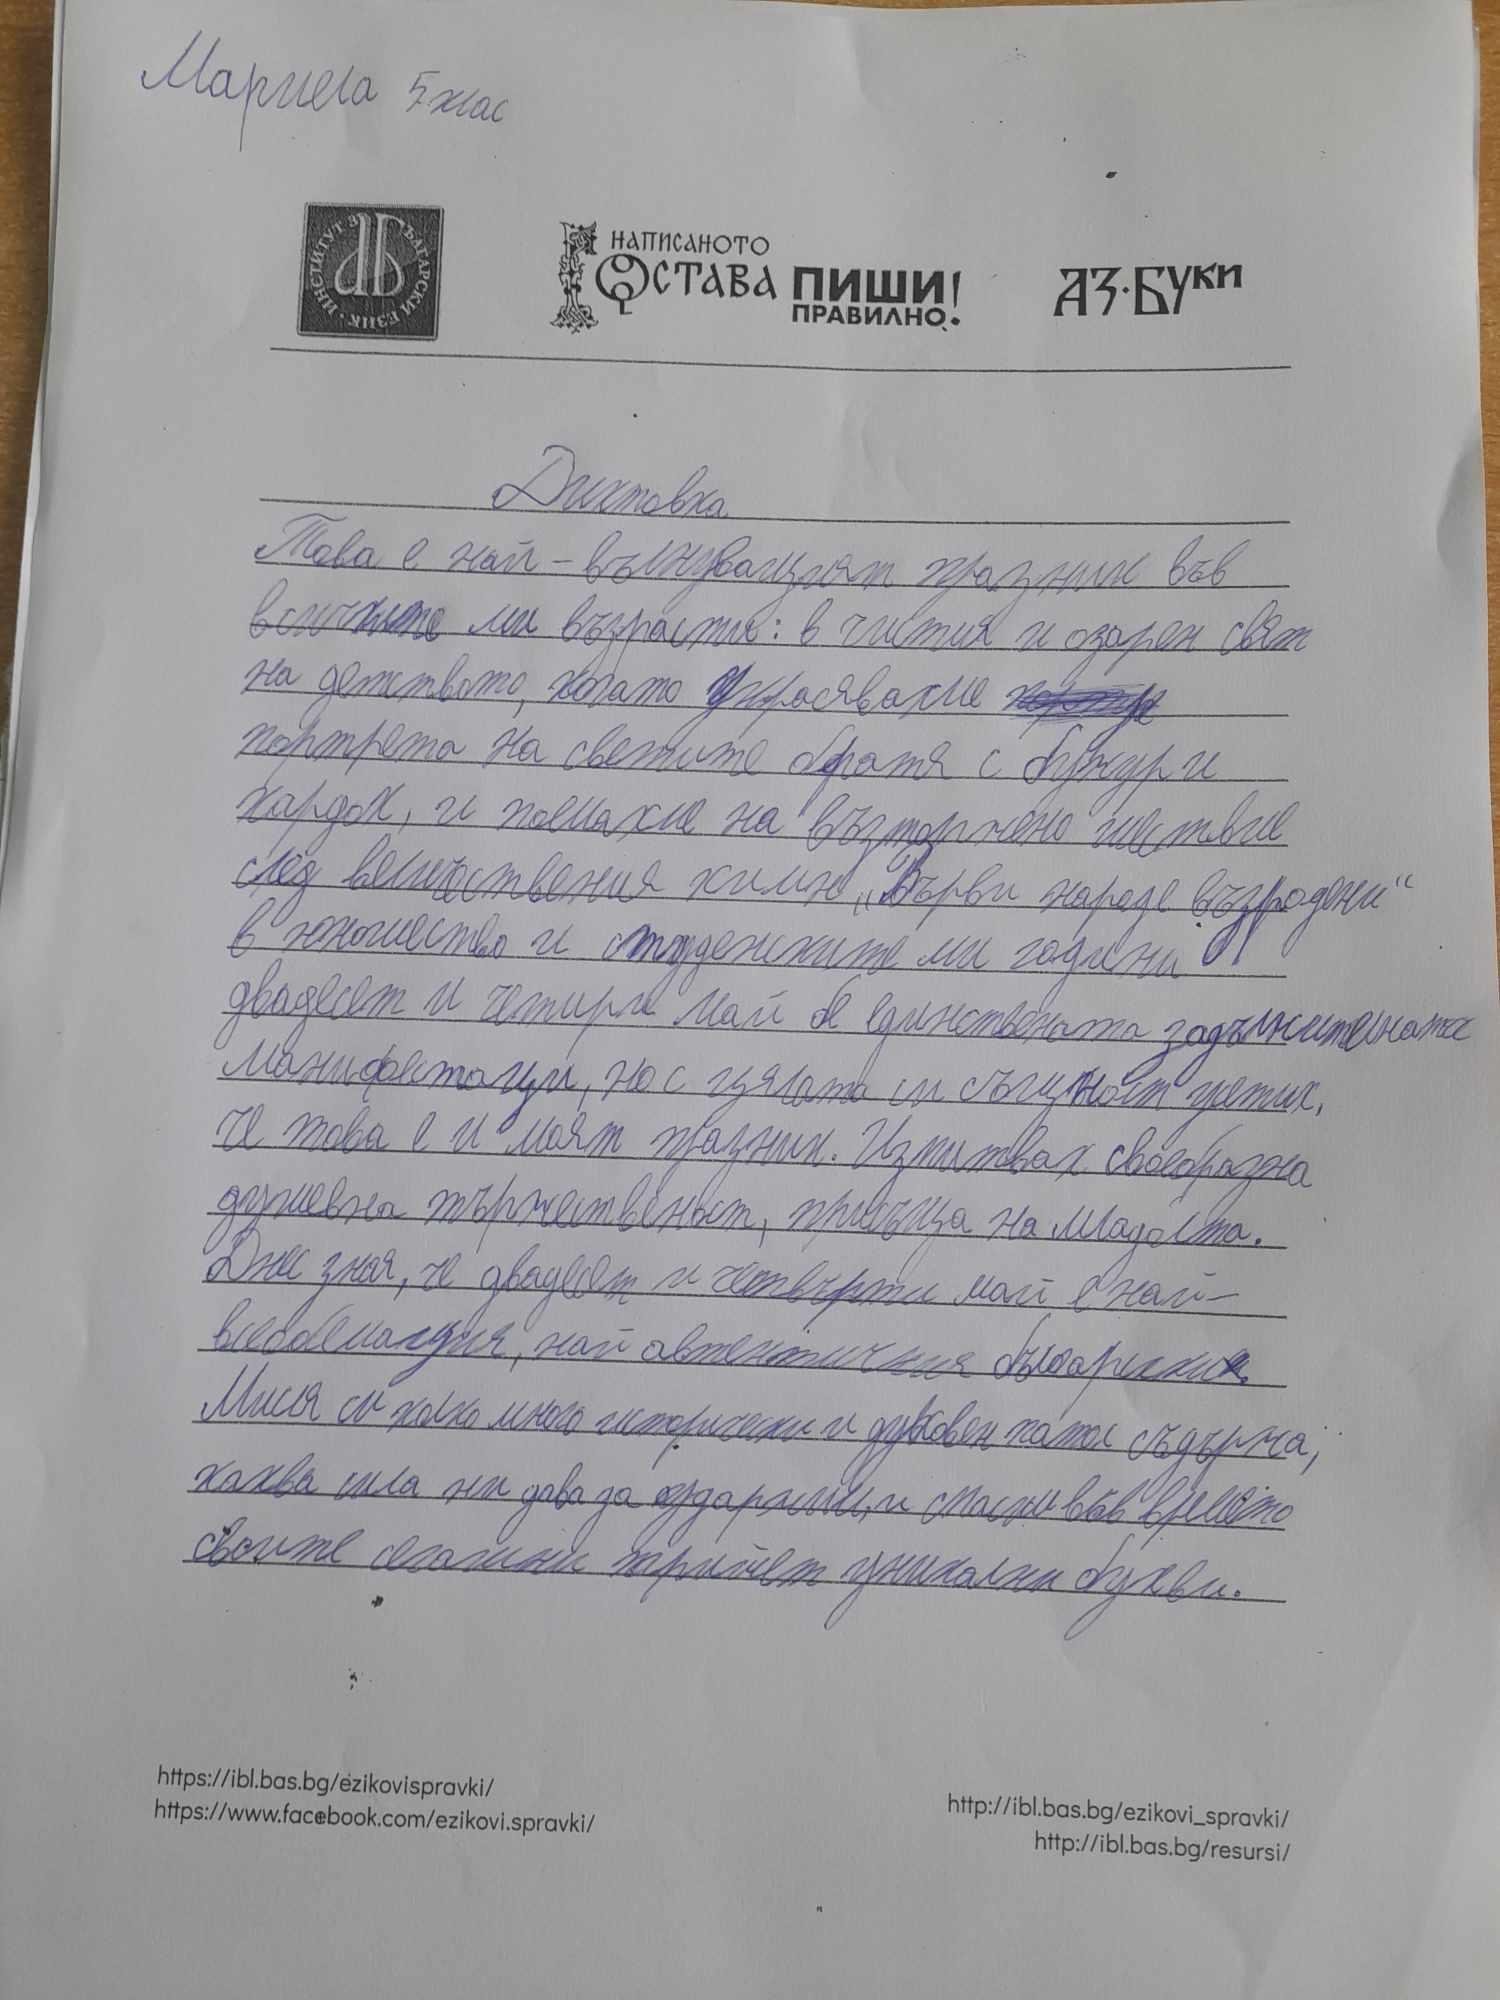 Мариела 5 клас
ИНСТИТУТ ЗА БЪЛГАРСКИ ЕЗИК
НАПИСАНОТО
ОСТАВА ПИШИ
ПРАВИЛНО!
АЗ·БУКИ
Диктовка
Това е най-вълнуващият празник във
всичките ми възрасти: в чистия и озарен свят
на детството, когато украсявахме
портрета на светите братя с божур и
кардок, и поемахме на възторжено шествие
след величествения химн „Върви народе възродени“
в юношество и студенските ми години
двадесет и четири май бе единствената задължителната
манифектация, но с цялата си същност усетих,
че това е и моят празник. Изпитвах своеобразна
душевна тържественост, присъща на младостта.
Днес зная, че двадесет и четвърти май е най-
всеобемащия, най автентичния български.
Мисля си колко много исторически и духовен патос съдържа,
каква сила ни дава за одържим, и спасни във времето
своите сегашни трийсет уникални букви.
https://ibl.bas.bg/ezikovispravki/
https://www.facebook.com/ezikovi.spravki/
http://ibl.bas.bg/ezikovi_spravki/
http://ibl.bas.bg/resursi/